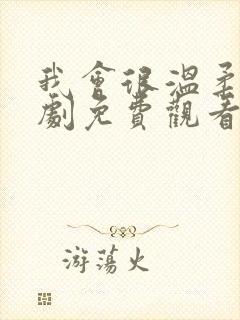 我會很溫柔
劇免費觀看
游蕩火